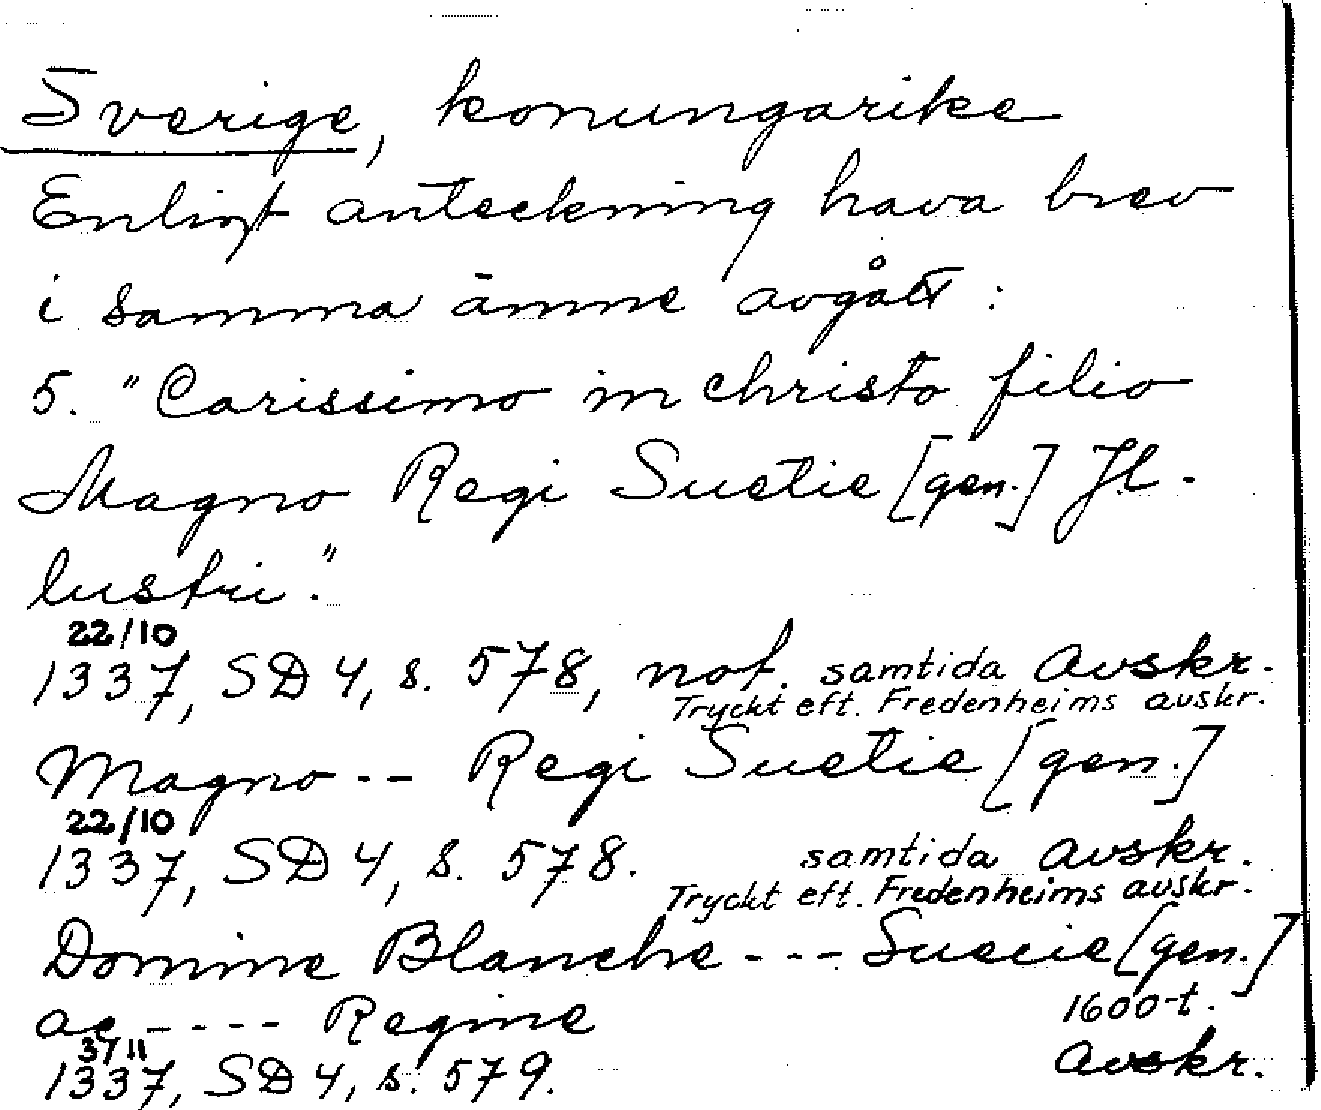 Sverige, konungarike
Enligt anteckning hava brev
i samma ämne avgått:
5. "Carissimo in christo filio
Magno Regi Suetie [gen.] Jl-
lustri."
22/10
1337, SD 4, s. 578, not. samtida Avskr.
Tryckt eft. Fredenheims avskr.
Magno -- Regi Suetie [gen.]
22/10
1337, SD 4, s. 578. samtida Avskr.
Tryckt eft. Fredenheims avskr.
Domine Blanche --- Suecie [gen.]
ac ---- Regine 1600-t.
3/11 Avskr.
1337, SD 4, s. 579.